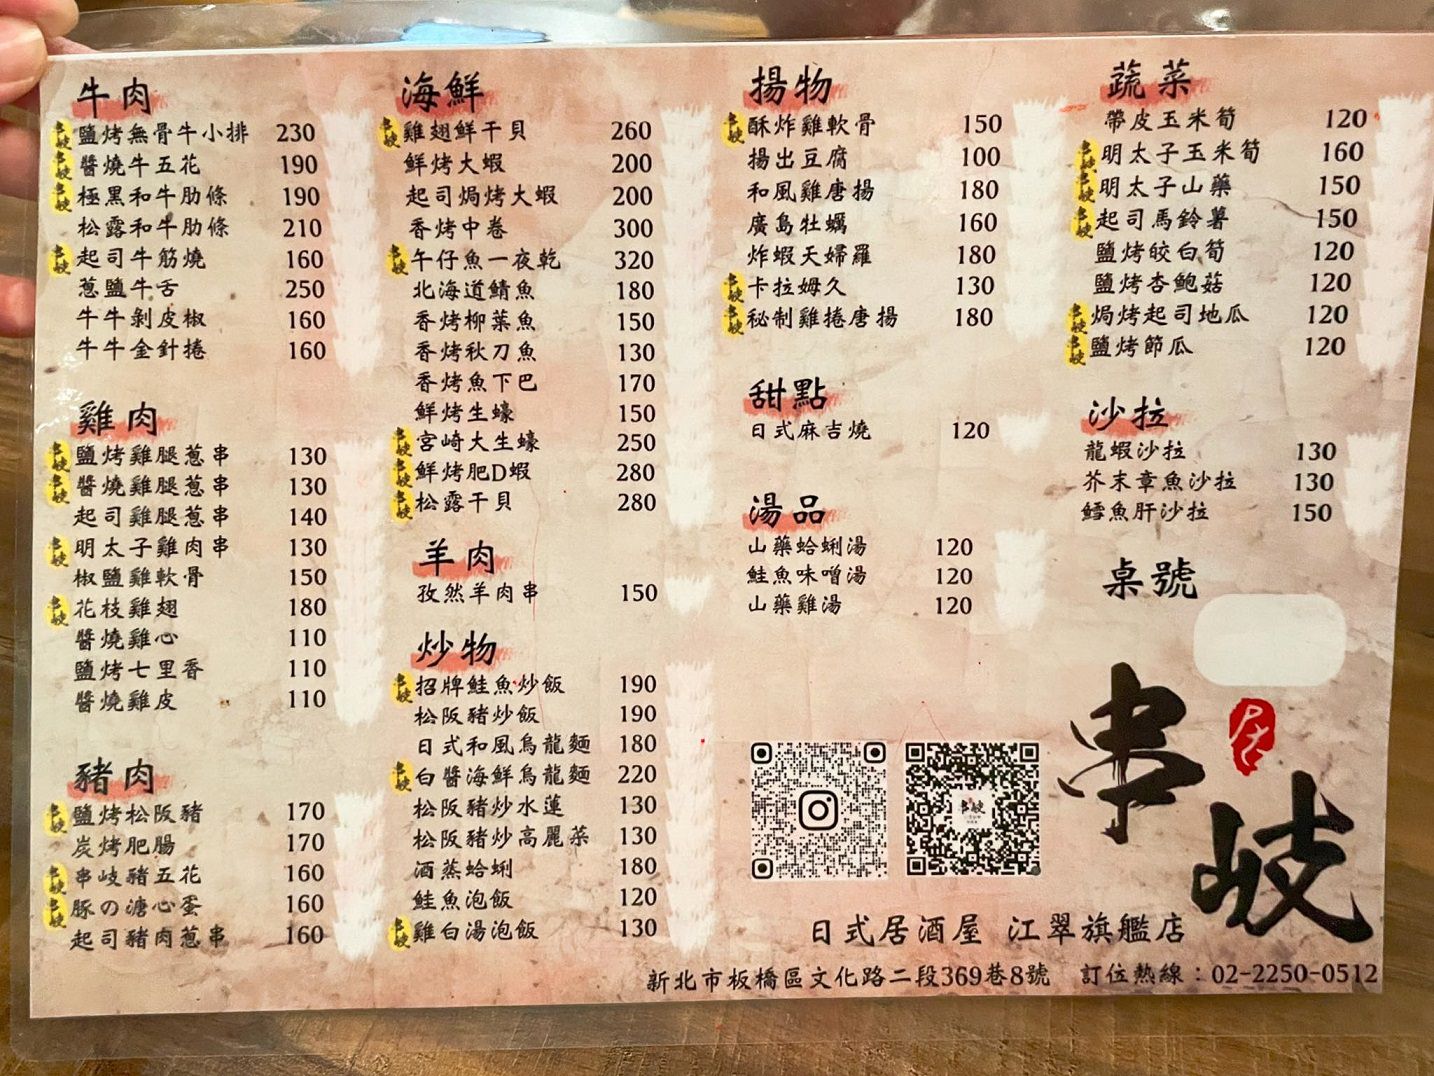 牛肉
鹽烤無骨牛小排 230
醬燒牛五花 190
極黑和牛肋條 190
松露和牛肋條 210
起司牛筋燒 160
蔥鹽牛舌 250
牛牛剝皮椒 160
牛牛金針捲 160
雞肉
鹽烤雞腿蔥串 130
醬燒雞腿蔥串 130
起司雞腿蔥串 140
明太子雞肉串 130
椒鹽雞軟骨 150
花枝雞翅 180
醬燒雞心 110
鹽烤七里香 110
醬燒雞皮 110
豬肉
鹽烤松阪豬 170
炭烤肥腸 170
串岐豬五花 160
豚の溏心蛋 160
起司豬肉蔥串 160
海鮮
雞翅鮮干貝 260
鮮烤大蝦 200
起司焗烤大蝦 200
香烤中卷 300
午仔魚一夜乾 320
北海道鯖魚 180
香烤柳葉魚 150
香烤秋刀魚 130
香烤魚下巴 170
鮮烤生蠔 150
宮崎大生蠔 250
鮮烤肥D蝦 280
松露干貝 280
羊肉
孜然羊肉串 150
炒物
招牌鮭魚炒飯 190
松阪豬炒飯 190
日式和風烏龍麵 180
白醬海鮮烏龍麵 220
松阪豬炒水蓮 130
松阪豬炒高麗菜 130
酒蒸蛤蜊 180
鮭魚泡飯 120
雞白湯泡飯 130
揚物
酥炸雞軟骨 150
揚出豆腐 100
和風雞唐揚 180
廣島牡蠣 160
炸蝦天婦羅 180
卡拉姆久 130
秘制雞捲唐揚 180
甜點
日式麻吉燒 120
湯品
山藥蛤蜊湯 120
鮭魚味噌湯 120
山藥雞湯 120
蔬菜
帶皮玉米筍 120
明太子玉米筍 160
明太子山藥 150
起司馬鈴薯 150
鹽烤皎白筍 120
鹽烤杏鮑菇 120
焗烤起司地瓜 120
鹽烤節瓜 120
沙拉
龍蝦沙拉 130
芥末章魚沙拉 130
鱈魚肝沙拉 150
桌號
串岐
日式居酒屋 江翠旗艦店
新北市板橋區文化路二段369巷8號 訂位熱線：02-2250-0512